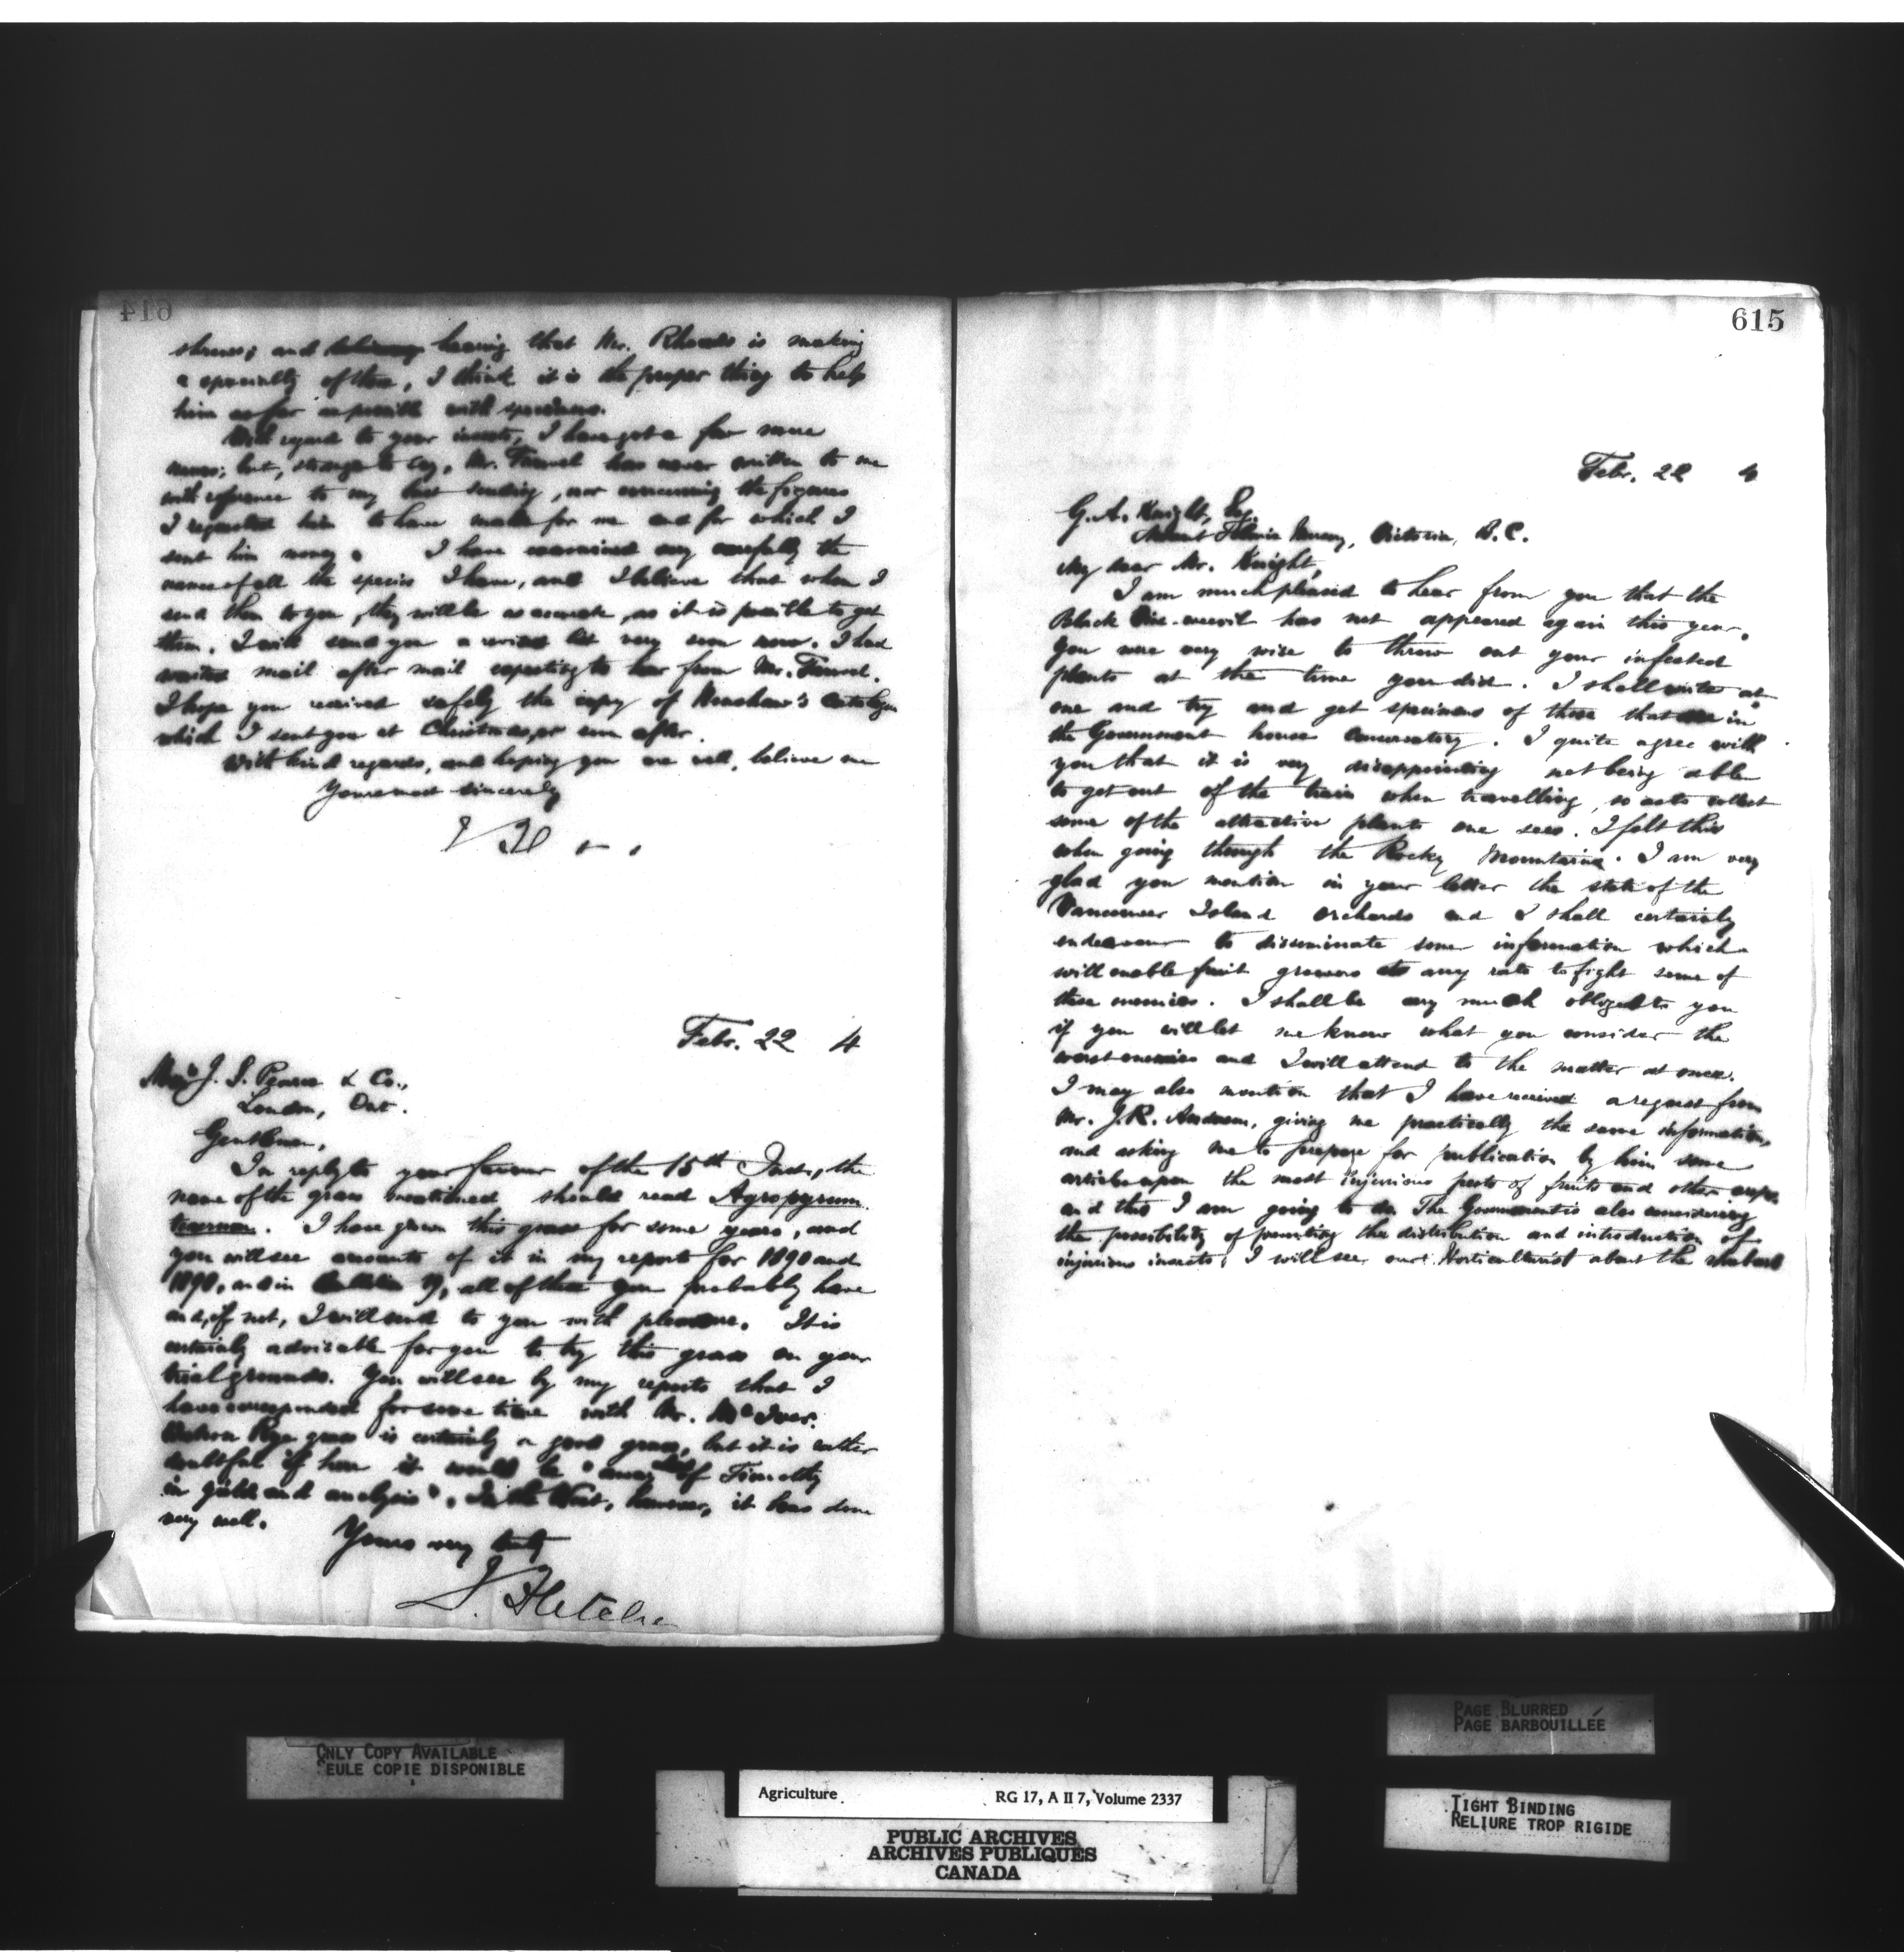 614
and hearing that Mr. Rhoads is making
a specialty of these, I think it is the proper thing to help
him as far as possible with specimens.
With regard to your insects, I have got a few more
names; but, strange to say, Mr. has never written to me
with reference to my last sending, nor concerning the figures
I requested him to have made for me and for which I
sent him money. I have examined very carefully the
names of all the species I have, and I believe that when I
send them to you, they will be as accurate, as it is possible to get
them. I will send you a revised list very soon now. I had
waited mail after mail expecting to hear from Mr.
I hope you received safely the copy of Henshaw's Catalogue
which I sent you at Christmas, or soon after.
With kind regards, and hoping you are well, believe me
Yours most sincerely
Febr. 22 4
Messrs J. S. Pearce & Co.,
London, Ont.
Gentlemen,
In reply to your favour of the 15th Inst., the
name of the grass mentioned should read Agropyrum
tenerum. I have grown this grass for some years, and
you will see accounts of it in my reports for 1890 and
and in Bulletin 19, all of these you probably have
and, if not, I will send to you with pleasure. It is
certainly advisable for you to try this grass on your
trial grounds. You will see by my reports that I
have corresponded for some time with Mr. McIver.
Western Rye grass is certainly a good grass, but it is rather
doubtful if here it would be "ahead of Timothy
in yield and analysis". In the West, however, it has done
very well.
Yours very truly
J. Fletcher
615
Febr. 22 4
G. A. Knight, Esq.
Mount Tolmie Nursery, Victoria, B.C.
My dear Mr. Knight,
I am much pleased to hear from you that the
Black Vine-weevil has not appeared again this year.
You were very wise to throw out your infested
plants at the time you did. I shall write at
once and try and get specimens of those that are in
the Government house Conservatory. I quite agree with
you that it is very disappointing not being able
to get out of the train when travelling, so as to collect
some of the attractive plants one sees. I felt this
when going through the Rocky Mountains. I am very
glad you mention in your letter the state of the
Vancouver Island orchards and I shall certainly
endeavour to disseminate some information which
will enable fruit growers at any rate to fight some of
these enemies. I shall be very much obliged to you
if you will let me know what you consider the
worst enemies and I will attend to the matter at once.
I may also mention that I have received a request from
Mr. J.R. Anderson, giving me practically the same information,
and asking me to prepare for publication by him some
articles upon the most injurious pests of fruits and other crops
and this I am going to do. The Government is also considering
the possibility of preventing the distribution and introduction of
injurious insects. I will see our Horticulturist about the rhubarb
ONLY COPY AVAILABLE
SEULE COPIE DISPONIBLE
PAGE BLURRED
PAGE BARBOUILLÉE
Agriculture RG 17, A II 7, Volume 2337
TIGHT BINDING
RELIURE TROP RIGIDE
PUBLIC ARCHIVES
ARCHIVES PUBLIQUES
CANADA